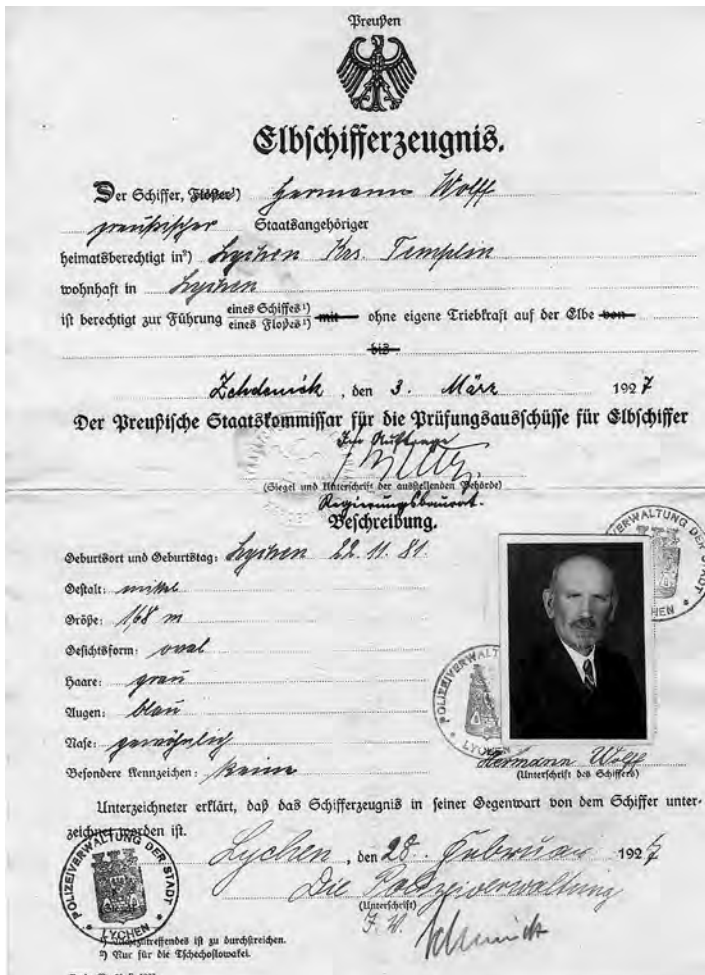 Preußen
Elbschifferzeugnis.
Der Schiffer, Flößer¹) Hermann Wolff
preußischer Staatsangehöriger
heimatsberechtigt in²) Lychen Krs. Templin
wohnhaft in Lychen
ist berechtigt zur Führung eines Schiffes¹) eines Floßes¹) mit ohne eigene Triebkraft auf der Elbe von
bis
Zehdenick, den 3. März 1927
Der Preußische Staatskommissar für die Prüfungsausschüsse für Elbschiffer
Im Auftrage
(Siegel und Unterschrift der ausstellenden Behörde)
Regierungsbaurat.
Beschreibung.
Geburtsort und Geburtstag: Lychen 22.11.81.
Gestalt: mittel
Größe: 1,68 m
Gesichtsform: oval
Haare: grau
Augen: blau
Nase: gewöhnlich
Besondere Kennzeichen: keine
POLIZEIVERWALTUNG DER STADT LYCHEN
POLIZEIVERWALTUNG DER STADT LYCHEN
Hermann Wolff
(Unterschrift des Schiffers)
Unterzeichneter erklärt, daß das Schifferzeugnis in seiner Gegenwart von dem Schiffer unter-
zeichnet worden ist.
Lychen, den 28. Februar 1927
Die Polizeiverwaltung
(Unterschrift)
POLIZEIVERWALTUNG DER STADT LYCHEN
¹) Nichtzutreffendes ist zu durchstreichen.
²) Nur für die Tschechoslowakei.